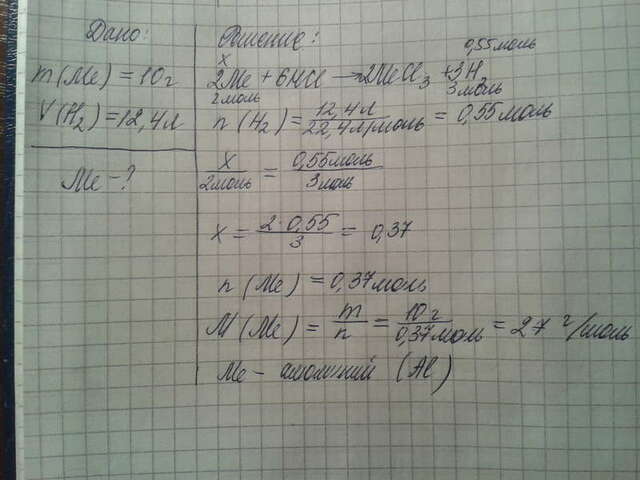 Дано:
m(Me) = 10г
V(H₂) = 12,4л
Me - ?
Решение:
x 0,55моль
2Me + 6HCl → 2MeCl₃ + 3H₂
2моль 3моль
n(H₂) = 12,4л / 22,4л/моль = 0,55моль
x / 2моль = 0,55моль / 3моль
x = 2·0,55 / 3 = 0,37
n(Me) = 0,37моль
M(Me) = m / n = 10г / 0,37моль = 27 г/моль
Me - алюминий (Al)